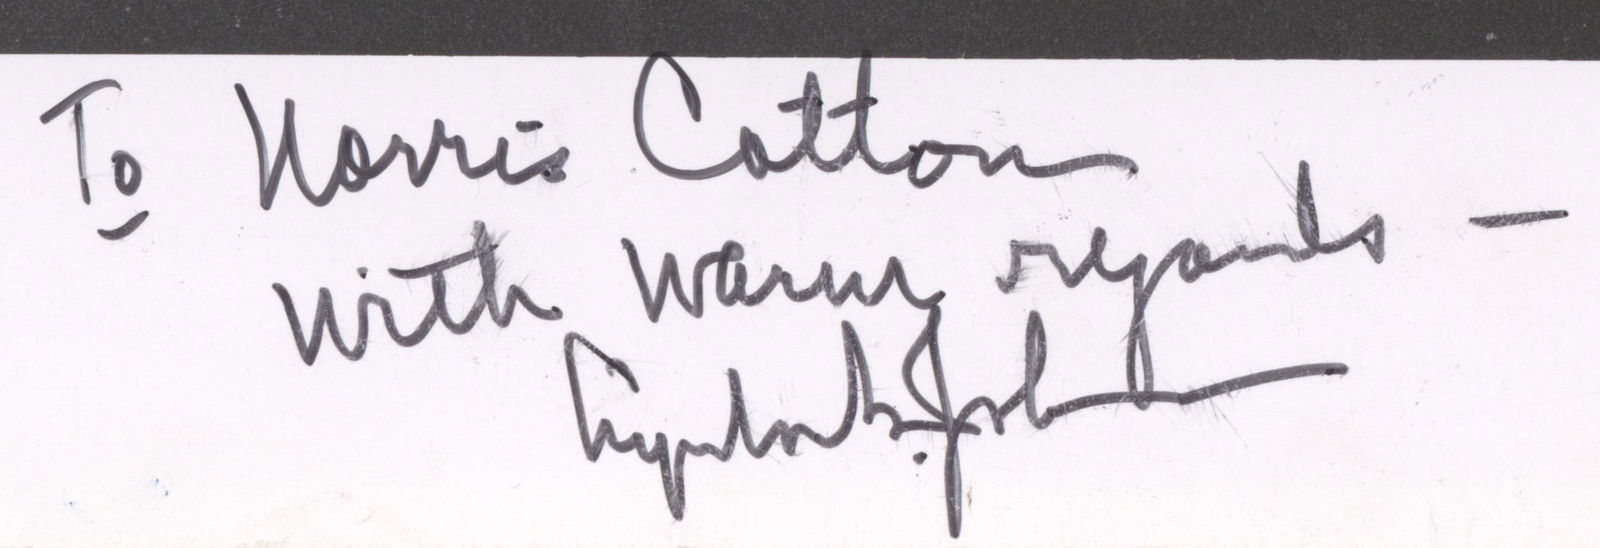 To Norris Cotton
with warm regards —
Lyndon B. Johnson